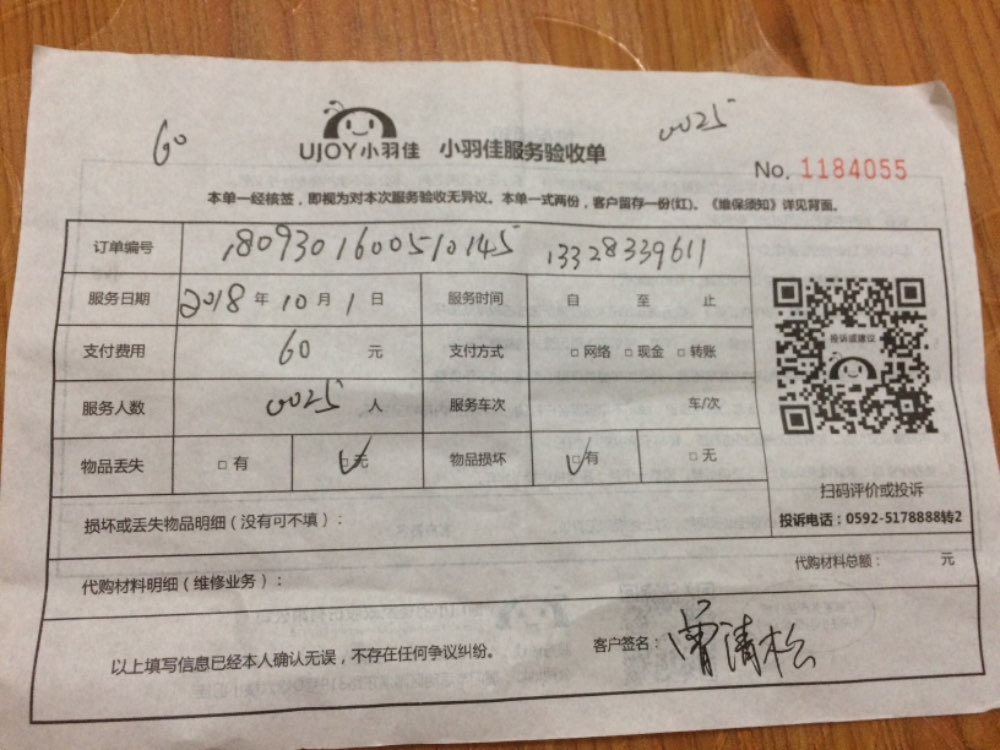 60
0025
UJOY小羽佳 小羽佳服务验收单
No. 1184055
本单一经核签，即视为对本次服务验收无异议。本单一式两份，客户留存一份(红)。《维保须知》详见背面。
订单编号 180930160051014​5 13328339611
服务日期 2018年10月1日 服务时间 自 至 止
支付费用 60 元 支付方式 □网络 □现金 □转账
服务人数 0025 人 服务车次 车/次
物品丢失 □有 □无 物品损坏 □有 □无
投诉或建议
扫码评价或投诉
投诉电话：0592-5178888转2
损坏或丢失物品明细（没有可不填）：
代购材料明细（维修业务）：
代购材料总额： 元
以上填写信息已经本人确认无误，不存在任何争议纠纷。
客户签名：曾清松